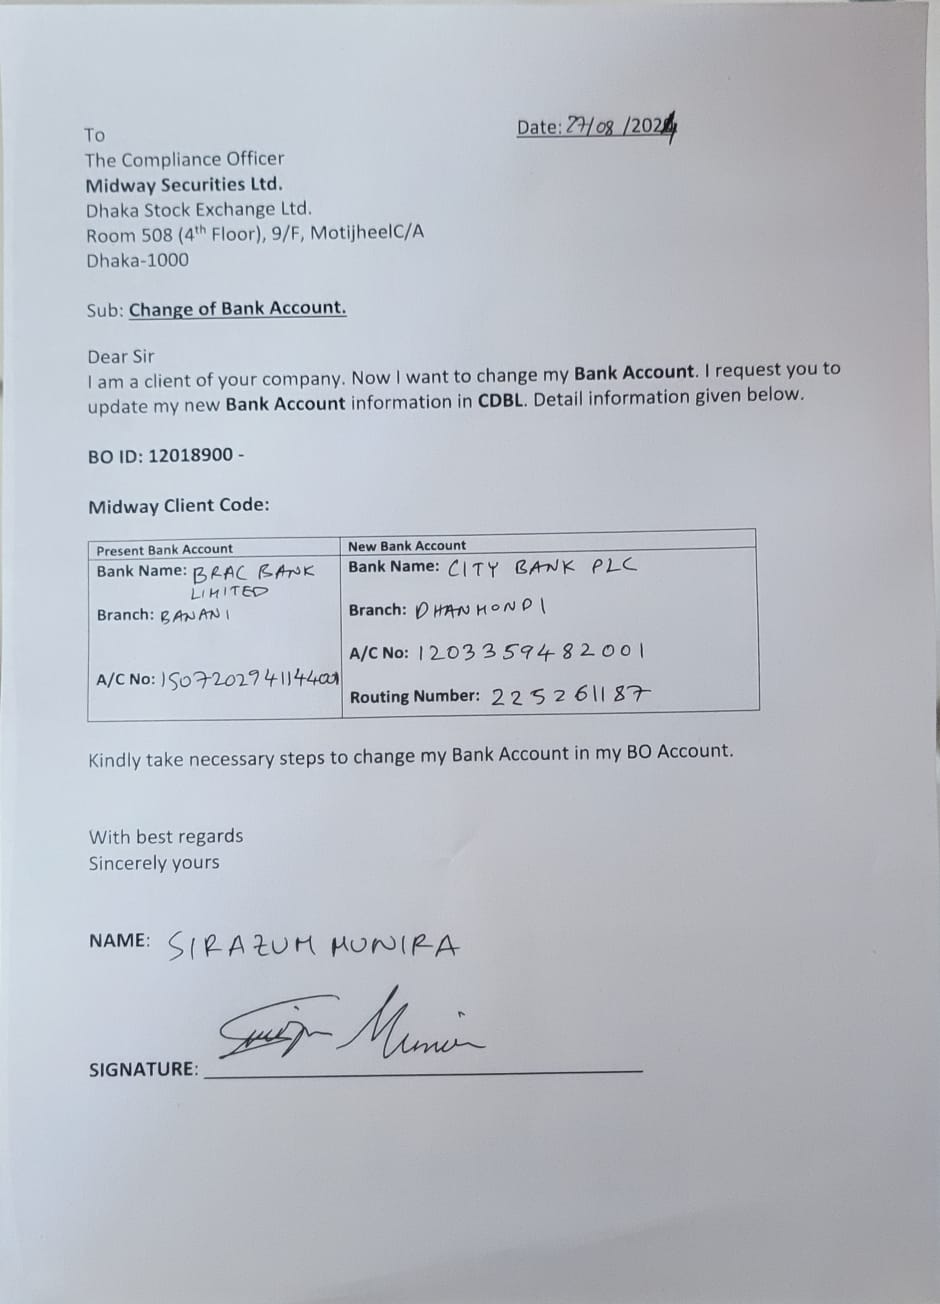 Date: 27/08 /2024
To
The Compliance Officer
Midway Securities Ltd.
Dhaka Stock Exchange Ltd.
Room 508 (4th Floor), 9/F, MotijheelC/A
Dhaka-1000
Sub: Change of Bank Account.
Dear Sir
I am a client of your company. Now I want to change my Bank Account. I request you to
update my new Bank Account information in CDBL. Detail information given below.
BO ID: 12018900 -
Midway Client Code:
Present Bank Account
Bank Name: BRAC BANK
LIMITED
Branch: BANANI
A/C No:
New Bank Account
Bank Name: CITY BANK PLC
Branch: DHANMONDI
A/C No: 1203359482001
Routing Number: 225261187
Kindly take necessary steps to change my Bank Account in my BO Account.
With best regards
Sincerely yours
NAME: SIRAZUM MUNIRA
SIGNATURE: